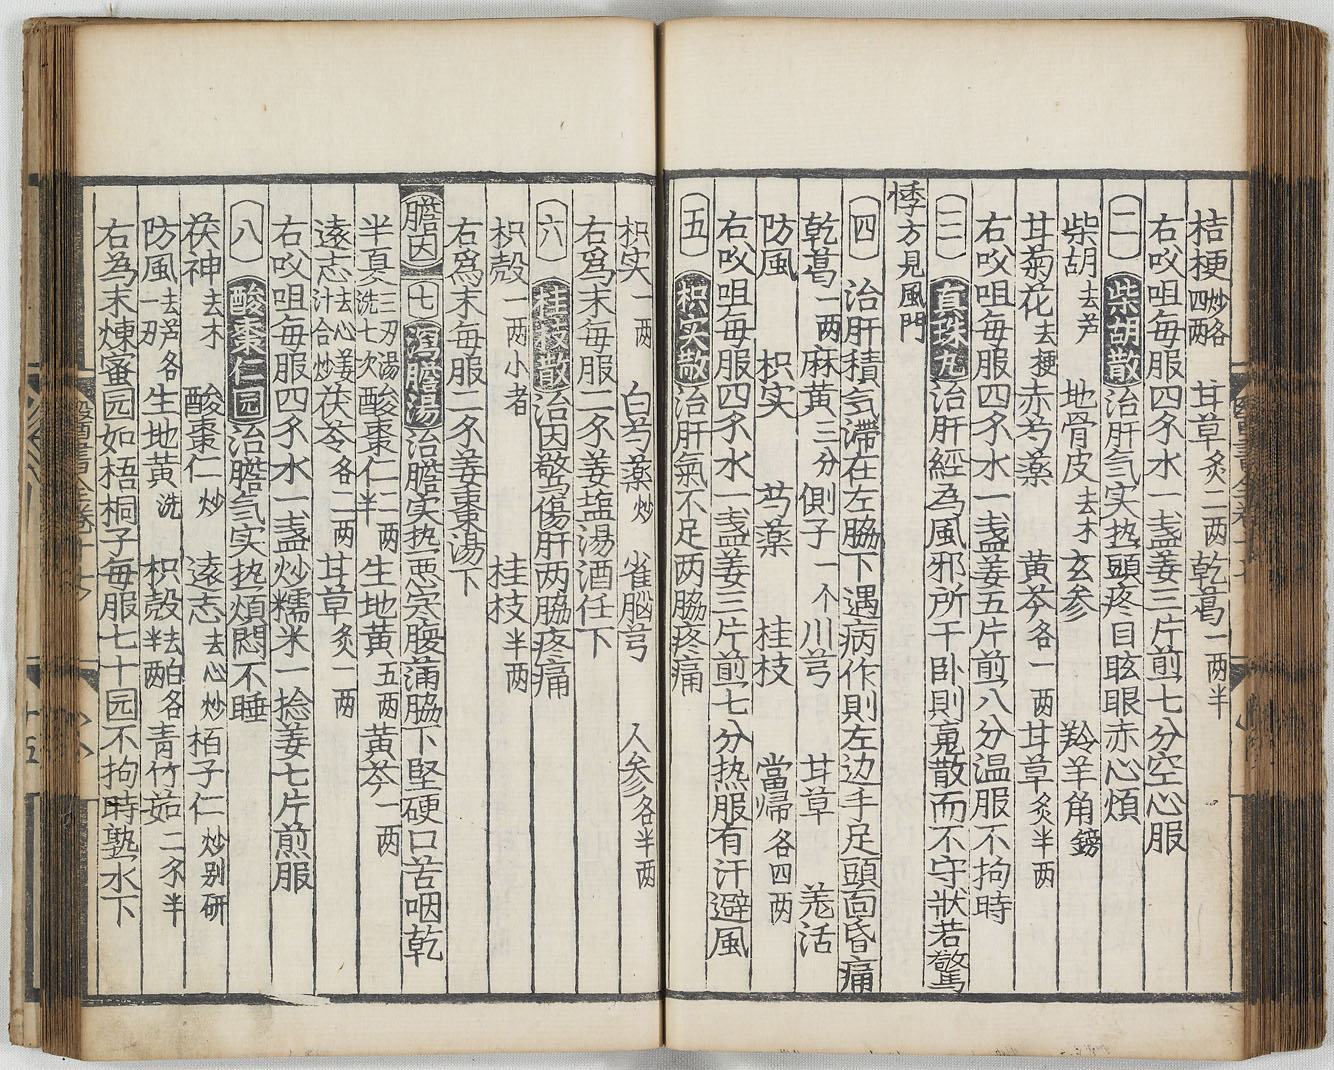 桔梗四两炒各 甘草炙二两 乾葛一两半
右㕮咀每服四分水一盏姜三片煎七分空心服
二 柴胡散 治肝气实热頭疼目眩眼赤心煩
柴胡去芦 地骨皮去木 玄参 羚羊角鎊
甘菊花去梗 赤芍薬 黄芩各一两 甘草炙半两
右㕮咀每服四分水一盏姜五片煎八分温服不拘時
三 真珠丸 治肝經為風邪所干卧則䰟散而不守狀若驚
悸方見風門
四 治肝積气滞在左脇下遇病作則左边手足頭面昏痛
乾葛一两 麻黄三分 側子一个 川芎 甘草 羌活
防風 枳实 芍薬 桂枝 當帰各四两
右㕮咀每服四分水一盏姜三片煎七分热服有汗避風
五 枳实散 治肝氣不足两脇疼痛
枳实一两 白芍薬炒 雀脳芎 人参各半两
右爲末每服二分姜塩湯酒任下
六 桂枝散 治因驚傷肝两脇疼痛
枳殼一两小者 桂枝半两
右爲末每服二分姜棗湯下
膽因 七 瀉膽湯 治膽实热悪穴腹满脇下堅硬口苦咽乾
半夏三刃湯洗七次 酸棗仁二两半 生地黄五两 黄芩一两
遠志去心姜汁合炒 茯苓各二两 甘草炙一两
右㕮咀每服四分水一盏炒糯米一捻姜七片煎服
八 酸棗仁园 治膽气实热煩悶不睡
茯神去木 酸棗仁炒 遠志去心炒 栢子仁炒别研
防風去芦各一刃 生地黄洗 枳殼去白各半两 青竹茹二分半
右為末煉蜜园如梧桐子每服七十园不拘時熟水下